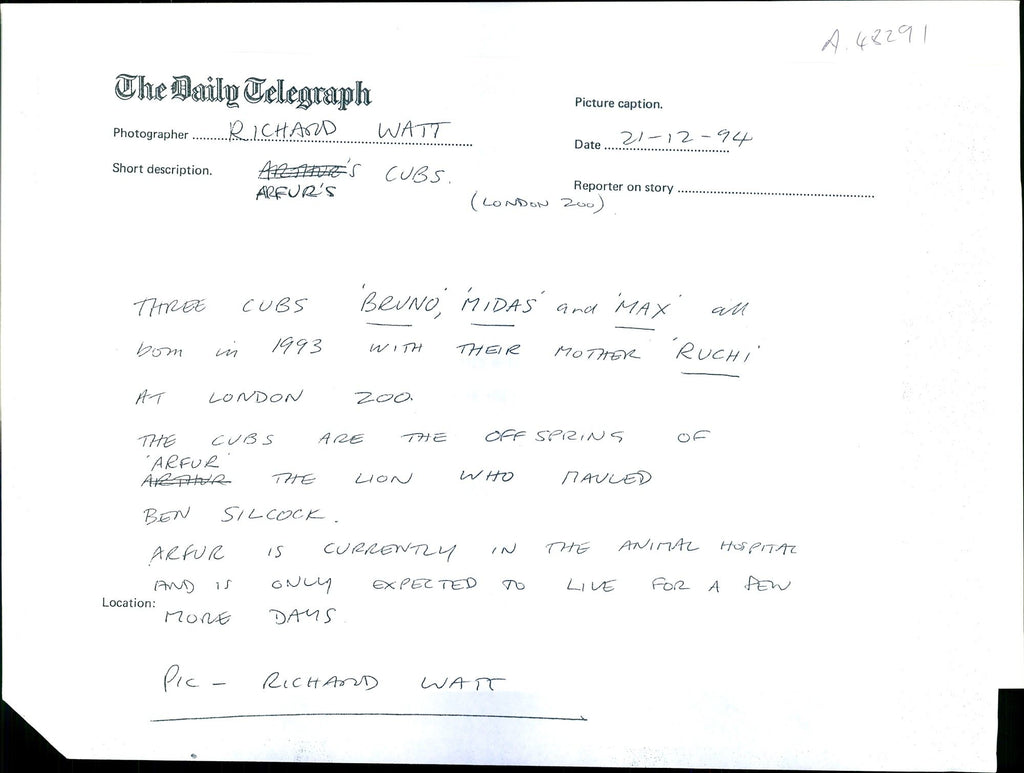 A.48291
The Daily Telegraph
Picture caption.
Photographer RICHARD WATT
Date 21-12-94
Short description. ARTHUR'S CUBS.
ARFUR'S
Reporter on story
(LONDON ZOO)
THREE CUBS 'BRUNO', 'MIDAS' and 'MAX' all
born in 1993 WITH THEIR MOTHER 'RUCHI'
AT LONDON ZOO.
THE CUBS ARE THE OFFSPRING OF
'ARFUR'
ARTHUR THE LION WHO MAULED
BEN SILCOCK.
ARFUR IS CURRENTLY IN THE ANIMAL HOSPITAL
AND IS ONLY EXPECTED TO LIVE FOR A FEW
Location:
MORE DAYS
PIC - RICHARD WATT